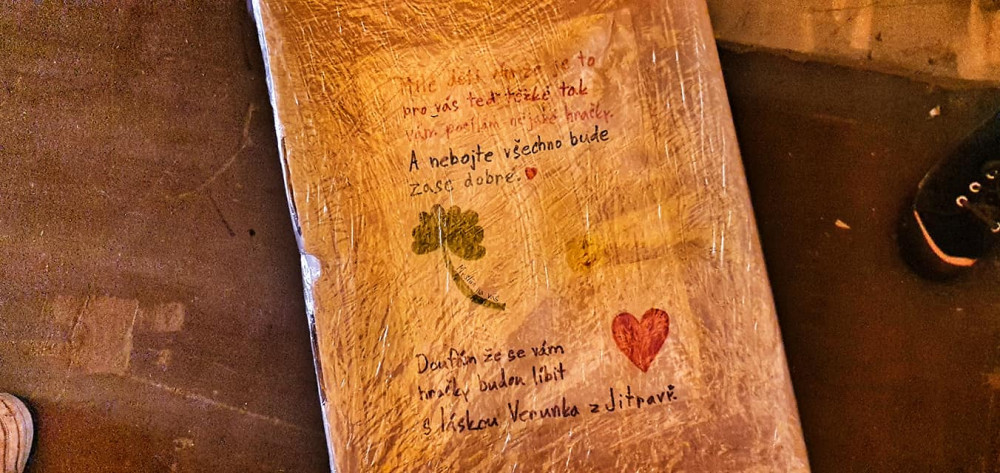 Milé děti vím že je to
pro vás teď těžké tak
vám posílám nějaké hračky.
A nebojte všechno bude
zase dobré.
Doufám že se vám
hračky budou líbit
s láskou Verunka z Jitravi